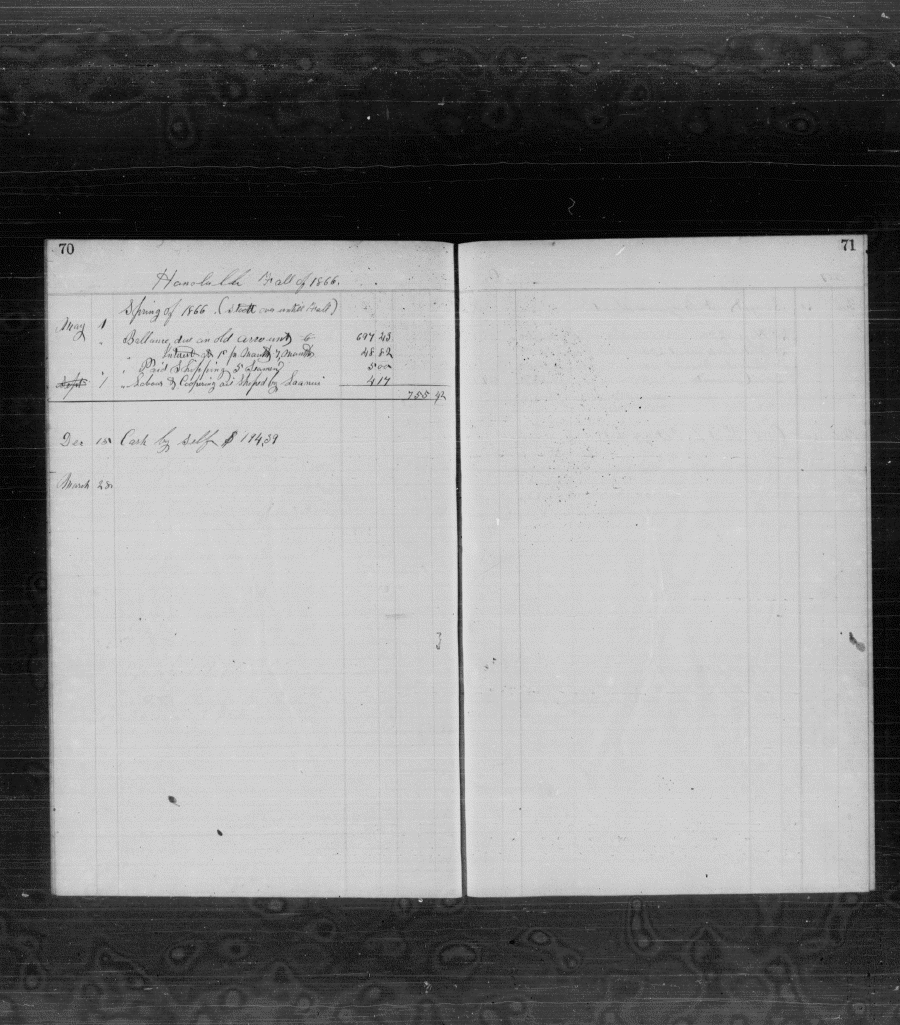 70
71
Honolulu Fall of 1866.
Spring of 1866 (until Fall)
May 1
" Ballance due on old account 697.43
Interest at 1 pr Month 7 Months 48.82
" Paid Shipping 5 500
Sept 1 " Labour & Coopering oil Shiped by 4 17
755 42
Dec 15 Cash by self $ 184,39
March 23
3